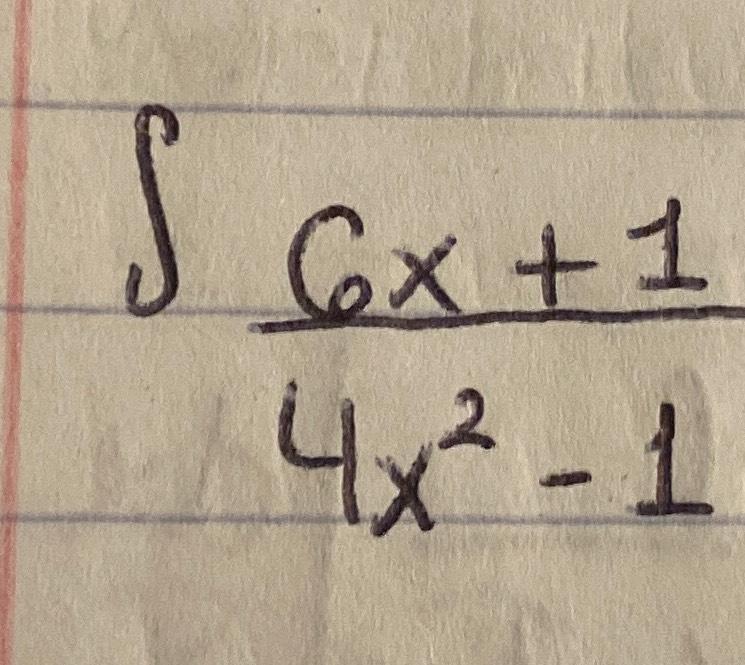 ∫ 6x + 1
4x² - 1